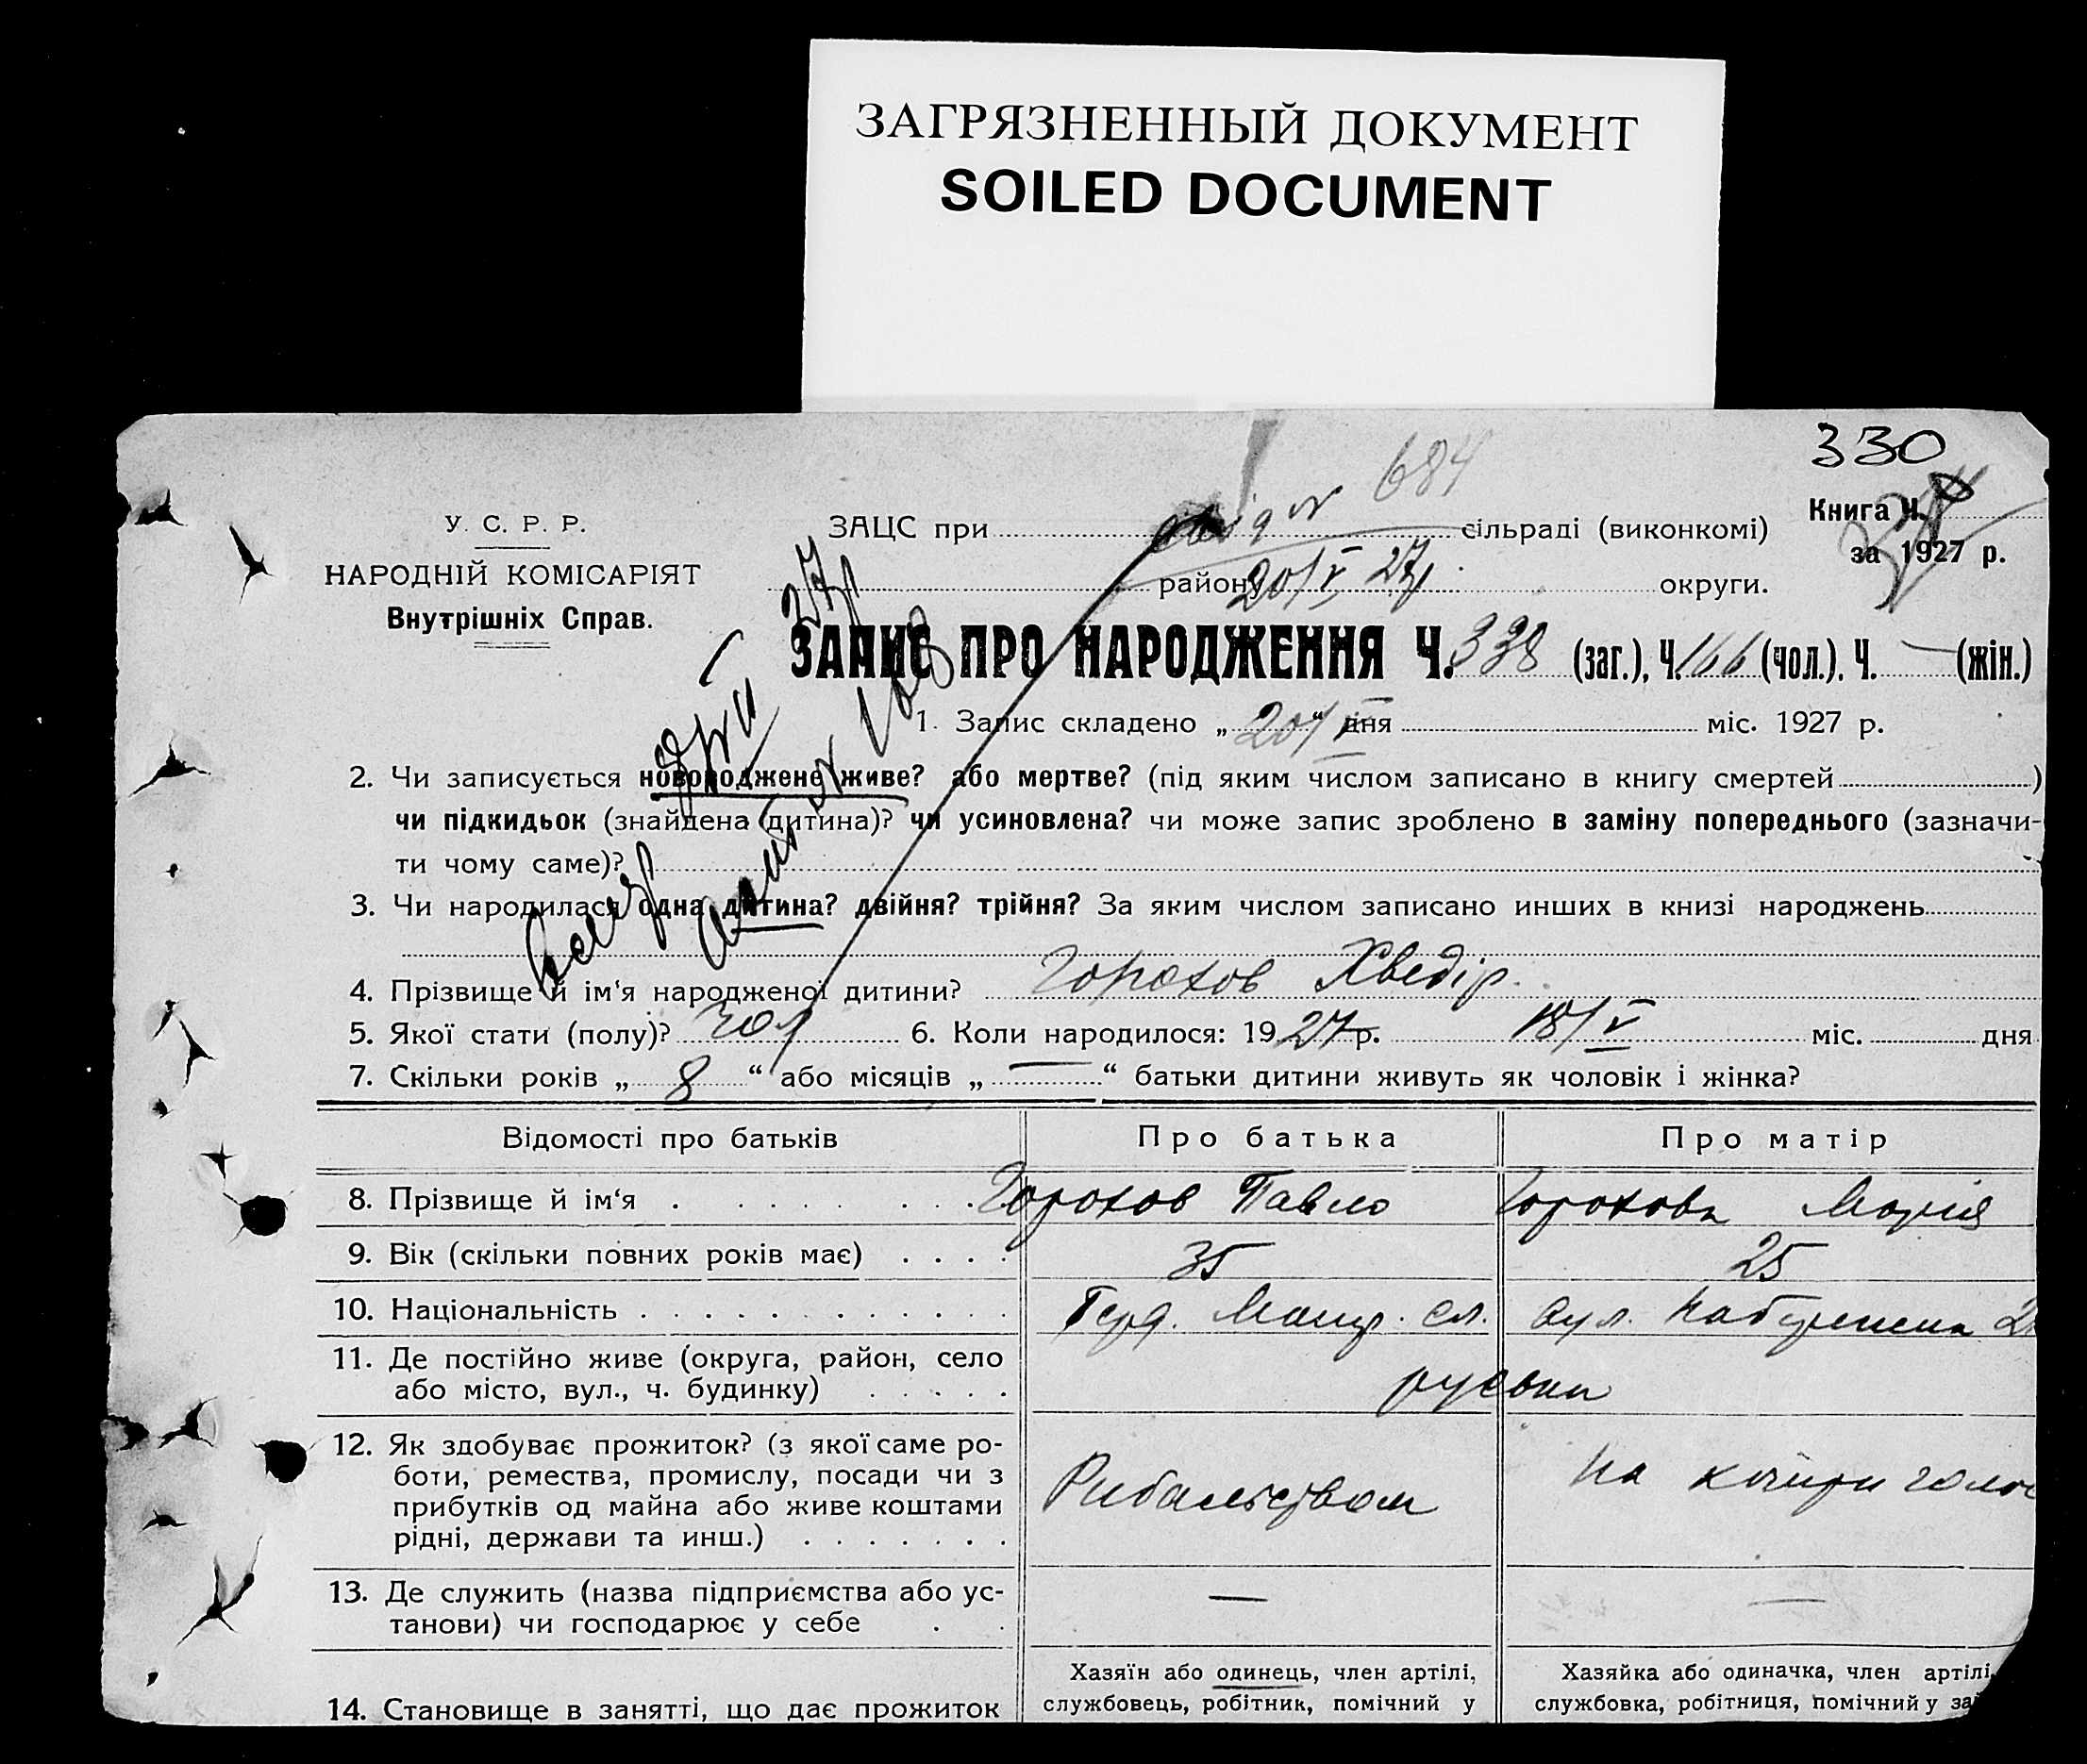 ЗАГРЯЗНЕННЫЙ ДОКУМЕНТ
SOILED DOCUMENT
330
684
У. С. Р. Р.
НАРОДНІЙ КОМІСАРІЯТ
Внутрішніх Справ.
ЗАЦС при сільраді (виконкомі)
Книга Ч.
за 1927 р.
району 20/V 27р. округи.
ЗАПИС ПРО НАРОДЖЕННЯ Ч. 338 (заг.), Ч. 166 (чол.), Ч. — (жін.)
1. Запис складено „ 20/V “ дня міс. 1927 р.
2. Чи записується новороджене живе? або мертве? (під яким числом записано в книгу смертей )
чи підкидьок (знайдена дитина)? чи усиновлена? чи може запис зроблено в заміну попереднього (зазначи-
ти чому саме)?
3. Чи народилася одна дитина? двійня? трійня? За яким числом записано инших в книзі народжень
4. Прізвище й ім‘я народженої дитини? Горохов Хведір.
5. Якої стати (полу)? чол 6. Коли народилося: 1927 р. 18/V міс. дня
7. Скільки років „ 8 “ або місяців „ — “ батьки дитини живуть як чоловік і жінка?
Відомості про батьків Про батька Про матір
8. Прізвище й ім‘я Горохов Павло Горохова Марія
9. Вік (скільки повних років має) 35 25
10. Національність
11. Де постійно живе (округа, район, село
або місто, вул., ч. будинку)
12. Як здобуває прожиток? (з якої саме ро-
боти, ремества, промислу, посади чи з
прибутків од майна або живе коштами
рідні, держави та инш.)
Рибальством
13. Де служить (назва підприємства або ус-
танови) чи господарює у себе — —
14. Становище в занятті, що дає прожиток
Хазяїн або одинець, член артілі,
службовець, робітник, помічний у
Хазяйка або одиначка, член артілі,
службовка, робітниця, помічний у за